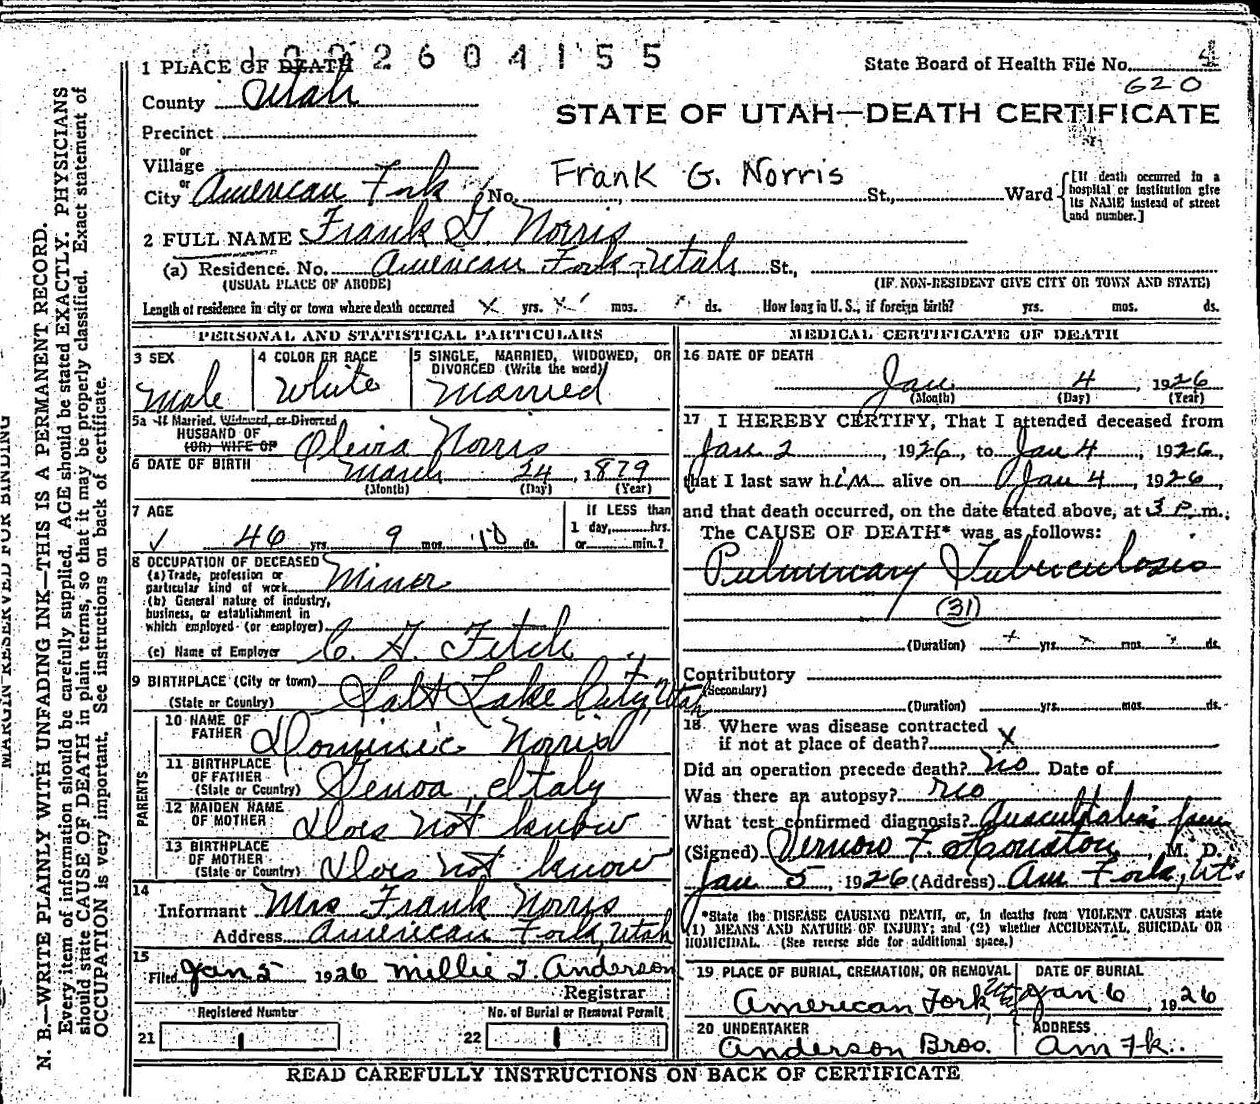 1002604155
1 PLACE OF DEATH
State Board of Health File No. 4
620
County Utah
STATE OF UTAH—DEATH CERTIFICATE
Precinct
or
Village
or
City American Fork No. Frank G. Norris St., Ward [If death occurred in a hospital or institution give its NAME instead of street and number.]
2 FULL NAME Frank G. Norris
(a) Residence. No. American Fork, Utah St.,
(USUAL PLACE OF ABODE) (IF NON-RESIDENT GIVE CITY OR TOWN AND STATE)
Length of residence in city or town where death occurred X yrs. X mos. ds. How long in U. S., if foreign birth? yrs. mos. ds.
PERSONAL AND STATISTICAL PARTICULARS
3 SEX
Male
4 COLOR OR RACE
White
5 SINGLE, MARRIED, WIDOWED, OR
DIVORCED (Write the word)
Married
5a If Married, Widowed, or Divorced
HUSBAND OF
(OR) WIFE OF Norris
6 DATE OF BIRTH March 24, 1879
(Month) (Day) (Year)
7 AGE
46 yrs. 9 mos. 10 ds.
If LESS than
1 day, hrs.
or min.?
8 OCCUPATION OF DECEASED
(a) Trade, profession or
particular kind of work Miner
(b) General nature of industry,
business, or establishment in
which employed (or employer)
(c) Name of Employer C. H. Fitch
9 BIRTHPLACE (City or town)
(State or Country) Salt Lake City, Utah
PARENTS
10 NAME OF
FATHER Dominic Norris
11 BIRTHPLACE
OF FATHER
(State or Country) Genoa, Italy
12 MAIDEN NAME
OF MOTHER Does not know
13 BIRTHPLACE
OF MOTHER
(State or Country) Does not know
14
Informant Mrs Frank Norris
Address American Fork, Utah
15
Filed Jan 5 1926 Millie T. Anderson
Registrar
Registered Number
21
No. of Burial or Removal Permit
22
MEDICAL CERTIFICATE OF DEATH
16 DATE OF DEATH
Jan 4, 1926
(Month) (Day) (Year)
17 I HEREBY CERTIFY, That I attended deceased from
Jan 2, 1926, to Jan 4, 1926,
that I last saw him alive on Jan 4, 1926,
and that death occurred, on the date stated above, at 3 P.m.
The CAUSE OF DEATH* was as follows:
Pulmunary Tuberculosis
(31)
(Duration) yrs. mos. ds.
Contributory
(Secondary)
(Duration) yrs. mos. ds.
18 Where was disease contracted
if not at place of death? X
Did an operation precede death? No Date of
Was there an autopsy? No
What test confirmed diagnosis?
(Signed) Vernon F. Houston, M. D.
Jan 5, 1926 (Address) Am Fork, Ut.
*State the DISEASE CAUSING DEATH, or, in deaths from VIOLENT CAUSES state
(1) MEANS AND NATURE OF INJURY; and (2) whether ACCIDENTAL, SUICIDAL OR
HOMICIDAL. (See reverse side for additional space.)
19 PLACE OF BURIAL, CREMATION, OR REMOVAL
American Fork, Ut
DATE OF BURIAL
Jan 6 1926
20 UNDERTAKER
Anderson Bros.
ADDRESS
Am Fk.
READ CAREFULLY INSTRUCTIONS ON BACK OF CERTIFICATE
MARGIN RESERVED FOR BINDING
N. B.—WRITE PLAINLY WITH UNFADING INK—THIS IS A PERMANENT RECORD.
Every item of information should be carefully supplied. AGE should be stated EXACTLY. PHYSICIANS
should state CAUSE OF DEATH in plain terms, so that it may be properly classified. Exact statement of
OCCUPATION is very important. See instructions on back of certificate.